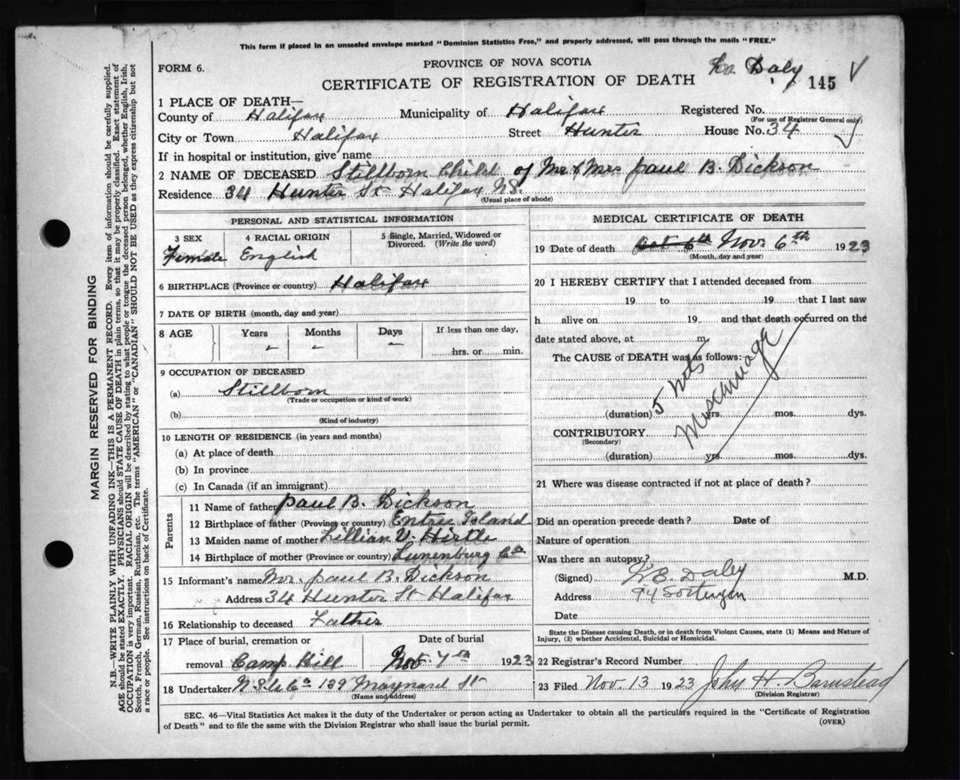 This form if placed in an unsealed envelope marked "Dominion Statistics Free," and properly addressed, will pass through the mails "FREE."
FORM 6.
PROVINCE OF NOVA SCOTIA
CERTIFICATE OF REGISTRATION OF DEATH Daly 145
1 PLACE OF DEATH—
County of Halifax Municipality of Halifax Registered No.
(For use of Registrar General only)
City or Town Halifax Street Hunter House No. 34
If in hospital or institution, give name
2 NAME OF DECEASED Stillborn Child of Mr & Mrs Paul B. Dickson
Residence 34 Hunter St Halifax N.S.
(Usual place of abode)
PERSONAL AND STATISTICAL INFORMATION
3 SEX 4 RACIAL ORIGIN 5 Single, Married, Widowed or Divorced. (Write the word)
Female English
6 BIRTHPLACE (Province or country) Halifax
7 DATE OF BIRTH (month, day and year)
8 AGE Years Months Days If less than one day,
- - - hrs. or min.
9 OCCUPATION OF DECEASED
(a) Stillborn
(Trade or occupation or kind of work)
(b)
(Kind of industry)
10 LENGTH OF RESIDENCE (in years and months)
(a) At place of death
(b) In province
(c) In Canada (if an immigrant)
Parents
11 Name of father Paul B. Dickson
12 Birthplace of father (Province or country) Entree Island
13 Maiden name of mother Lillian V. Hirtle
14 Birthplace of mother (Province or country) Lunenburg Co
15 Informant's name Mr. Paul B. Dickson
Address 34 Hunter St Halifax
16 Relationship to deceased Father
17 Place of burial, cremation or Date of burial
removal Camp Hill Nov 7th 1923
18 Undertaker N.S. U. Co 139 Maynard St
(Name and address)
MEDICAL CERTIFICATE OF DEATH
19 Date of death Oct 6th Nov. 6th 1923
(Month, day and year)
20 I HEREBY CERTIFY that I attended deceased from
19 to 19 that I last saw
h alive on 19 and that death occurred on the
date stated above, at m.
The CAUSE OF DEATH was as follows:
5 mts
Miscarriage
(duration) yrs. mos. dys.
CONTRIBUTORY
(Secondary)
(duration) yrs. mos. dys.
21 Where was disease contracted if not at place of death?
Did an operation precede death? Date of
Nature of operation
Was there an autopsy?
(Signed) W B. Daly M.D.
Address
Date
State the Disease causing Death, or in death from Violent Causes, state (1) Means and Nature of Injury, (2) whether Accidental, Suicidal or Homicidal.
22 Registrar's Record Number
23 Filed Nov. 13 1923 John H. Barnstead
(Division Registrar)
SEC. 46—Vital Statistics Act makes it the duty of the Undertaker or person acting as Undertaker to obtain all the particulars required in the "Certificate of Registration
of Death" and to file the same with the Division Registrar who shall issue the burial permit. (OVER)
MARGIN RESERVED FOR BINDING
N.B.—WRITE PLAINLY WITH UNFADING INK—THIS IS A PERMANENT RECORD. Every item of information should be carefully supplied.
AGE should be stated EXACTLY. PHYSICIANS should STATE CAUSE OF DEATH in plain terms, so that it may be properly classified. Exact statement of
OCCUPATION is very important. RACIAL ORIGIN will be described by stating to what people or tongue the deceased person belonged, whether English, Irish,
Scotch, French, German, Russian, Ruthenian, etc. The terms "AMERICAN" or "CANADIAN" SHOULD NOT BE USED as they express citizenship but not
a race or people. See instructions on back of Certificate.